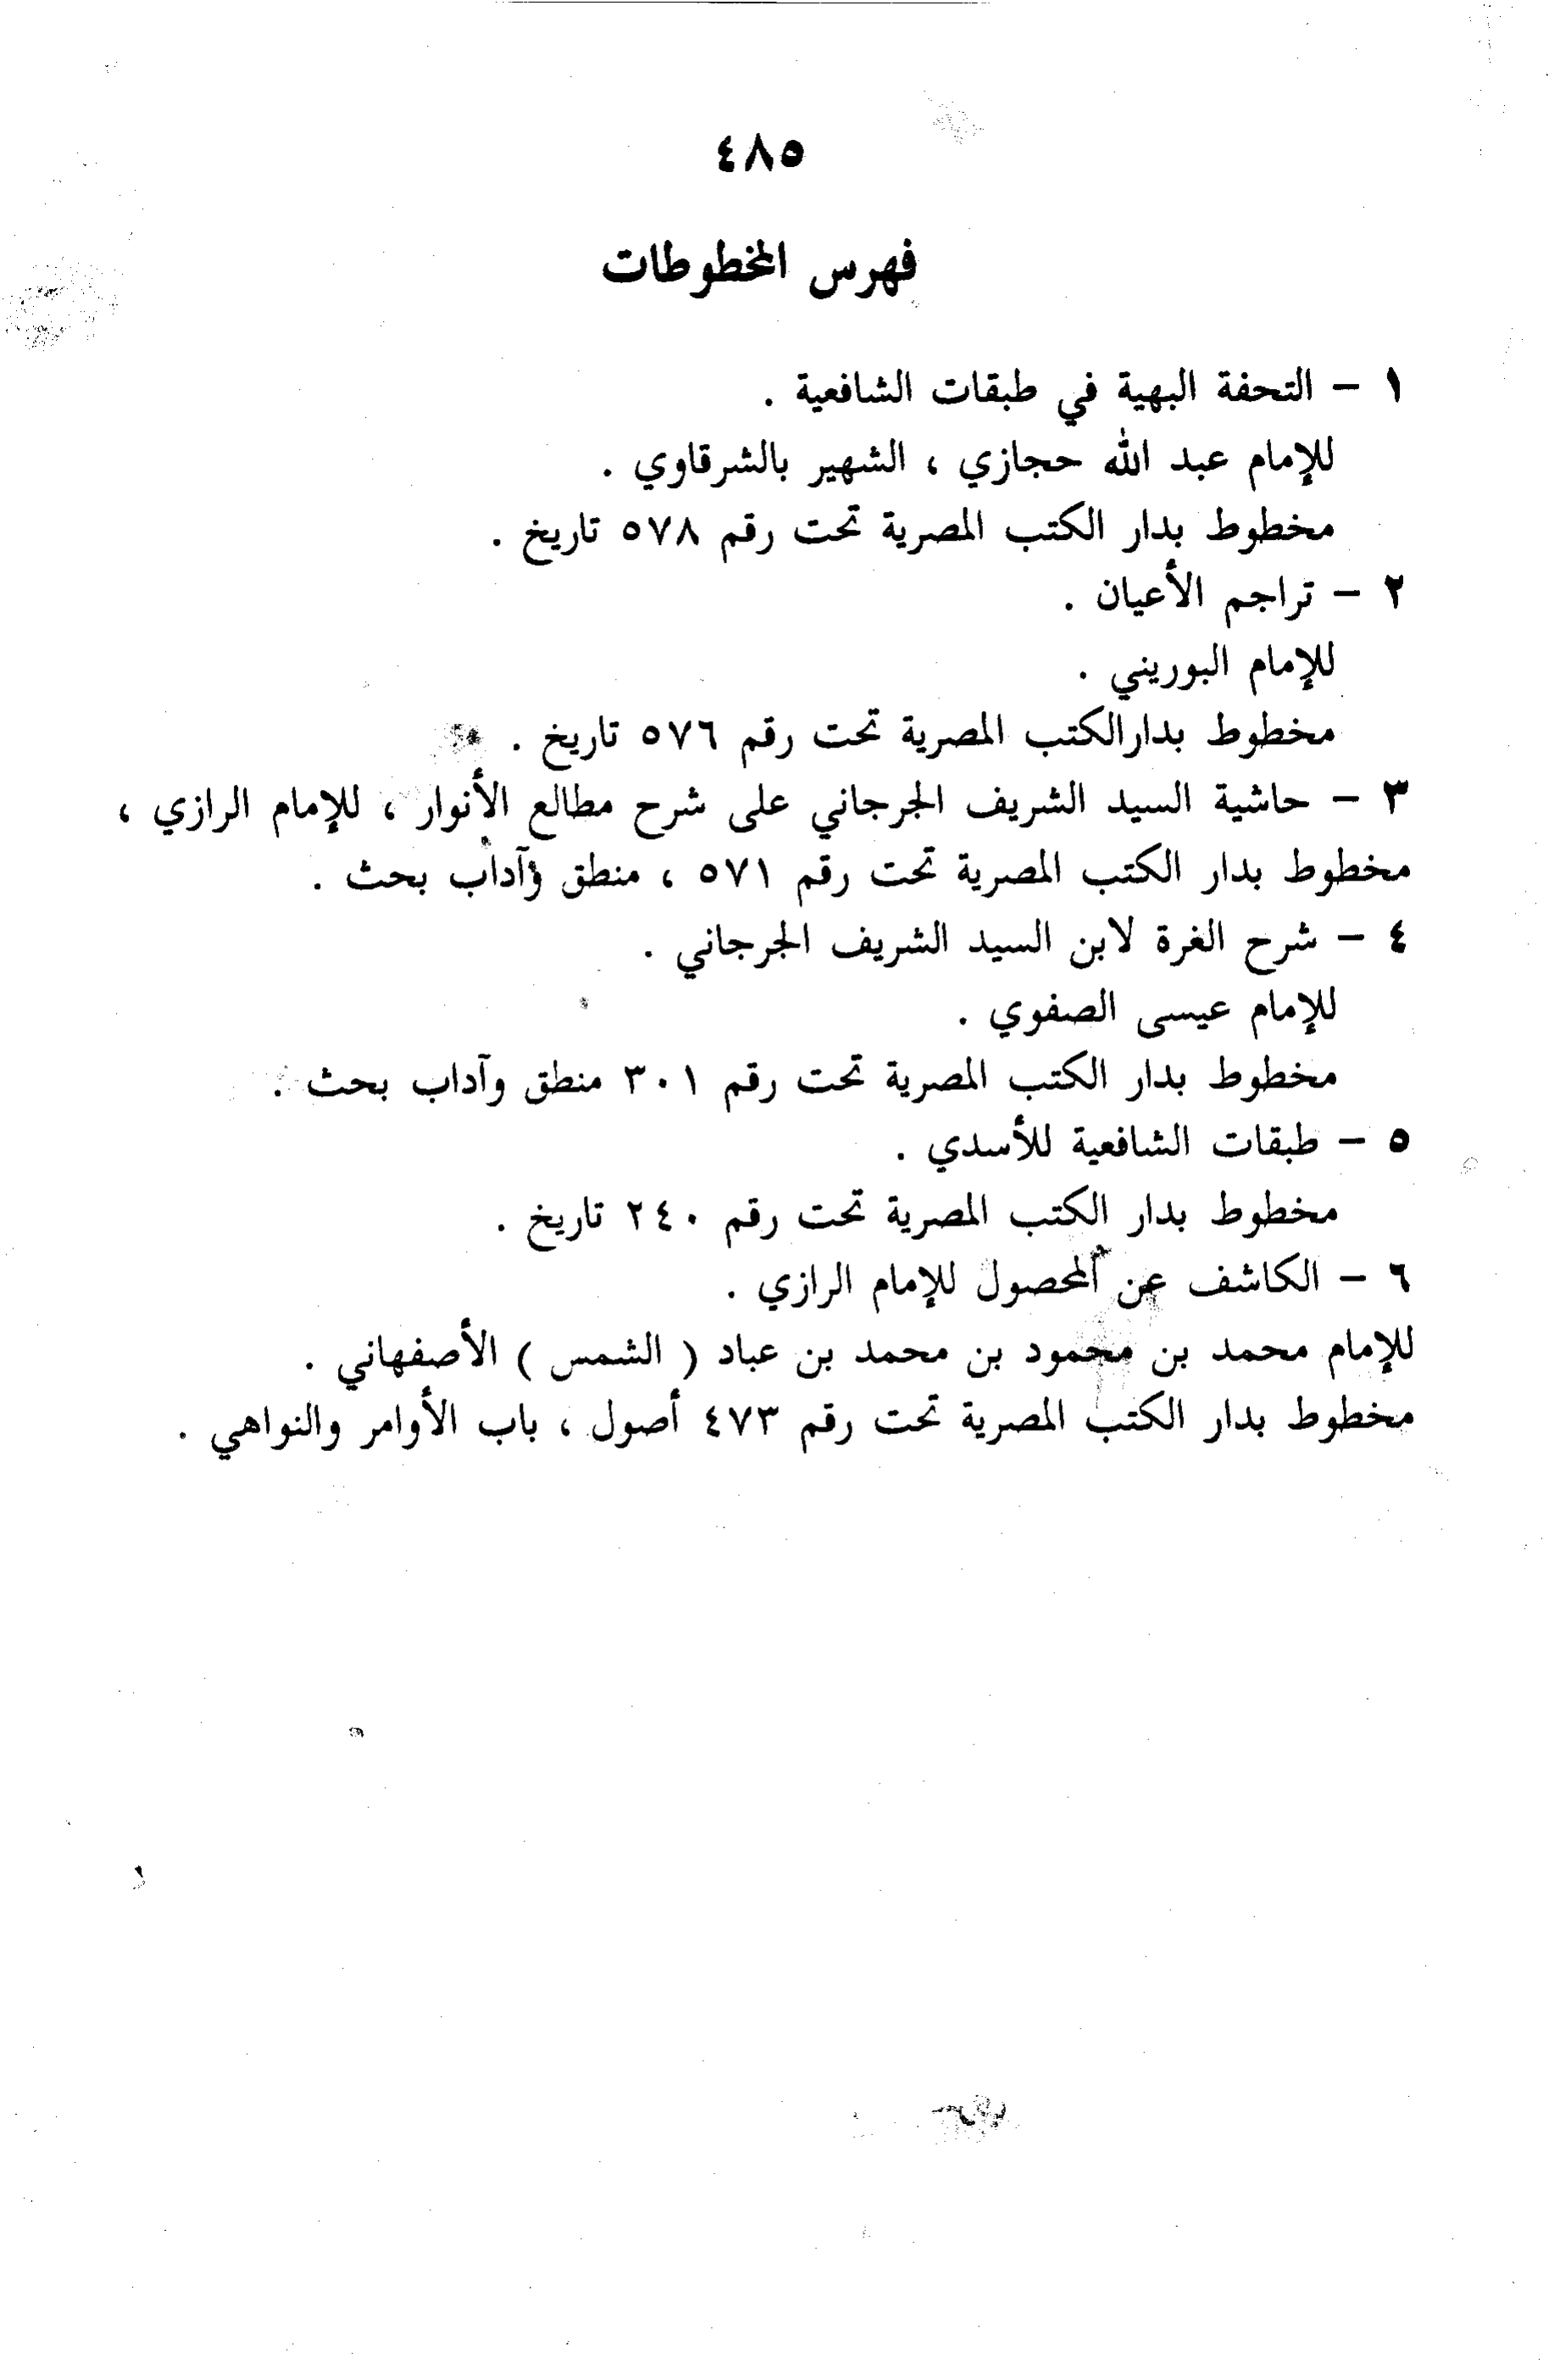 ٤٨٥
فهرس المخطوطات
١ – التحفة البهية في طبقات الشافعية .
للإمام عبد الله حجازي ، الشهير بالشرقاوي .
مخطوط بدار الكتب المصرية تحت رقم ٥٧٨ تاريخ .
٢ – تراجم الأعيان .
للإمام البوريني .
مخطوط بدارالكتب المصرية تحت رقم ٥٧٦ تاريخ .
٣ – حاشية السيد الشريف الجرجاني على شرح مطالع الأنوار ، للإمام الرازي ،
مخطوط بدار الكتب المصرية تحت رقم ٥٧١ ، منطق وآداب بحث .
٤ – شرح الغرة لابن السيد الشريف الجرجاني .
للإمام عيسى الصفوي .
مخطوط بدار الكتب المصرية تحت رقم ٣٠١ منطق وآداب بحث .
٥ – طبقات الشافعية للأسدي .
مخطوط بدار الكتب المصرية تحت رقم ٢٤٠ تاريخ .
٦ – الكاشف عن المحصول للإمام الرازي .
للإمام محمد بن محمود بن محمد بن عباد ( الشمس ) الأصفهاني .
مخطوط بدار الكتب المصرية تحت رقم ٤٧٣ أصول ، باب الأوامر والنواهي .